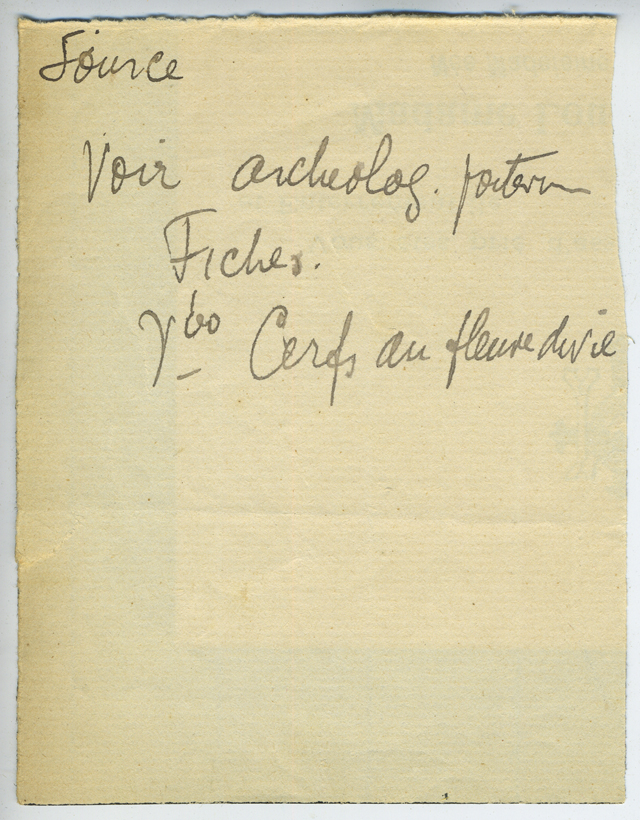 Source
Voir archeolog.
Fiches.
Vbo Cerfs au fleuve de vie